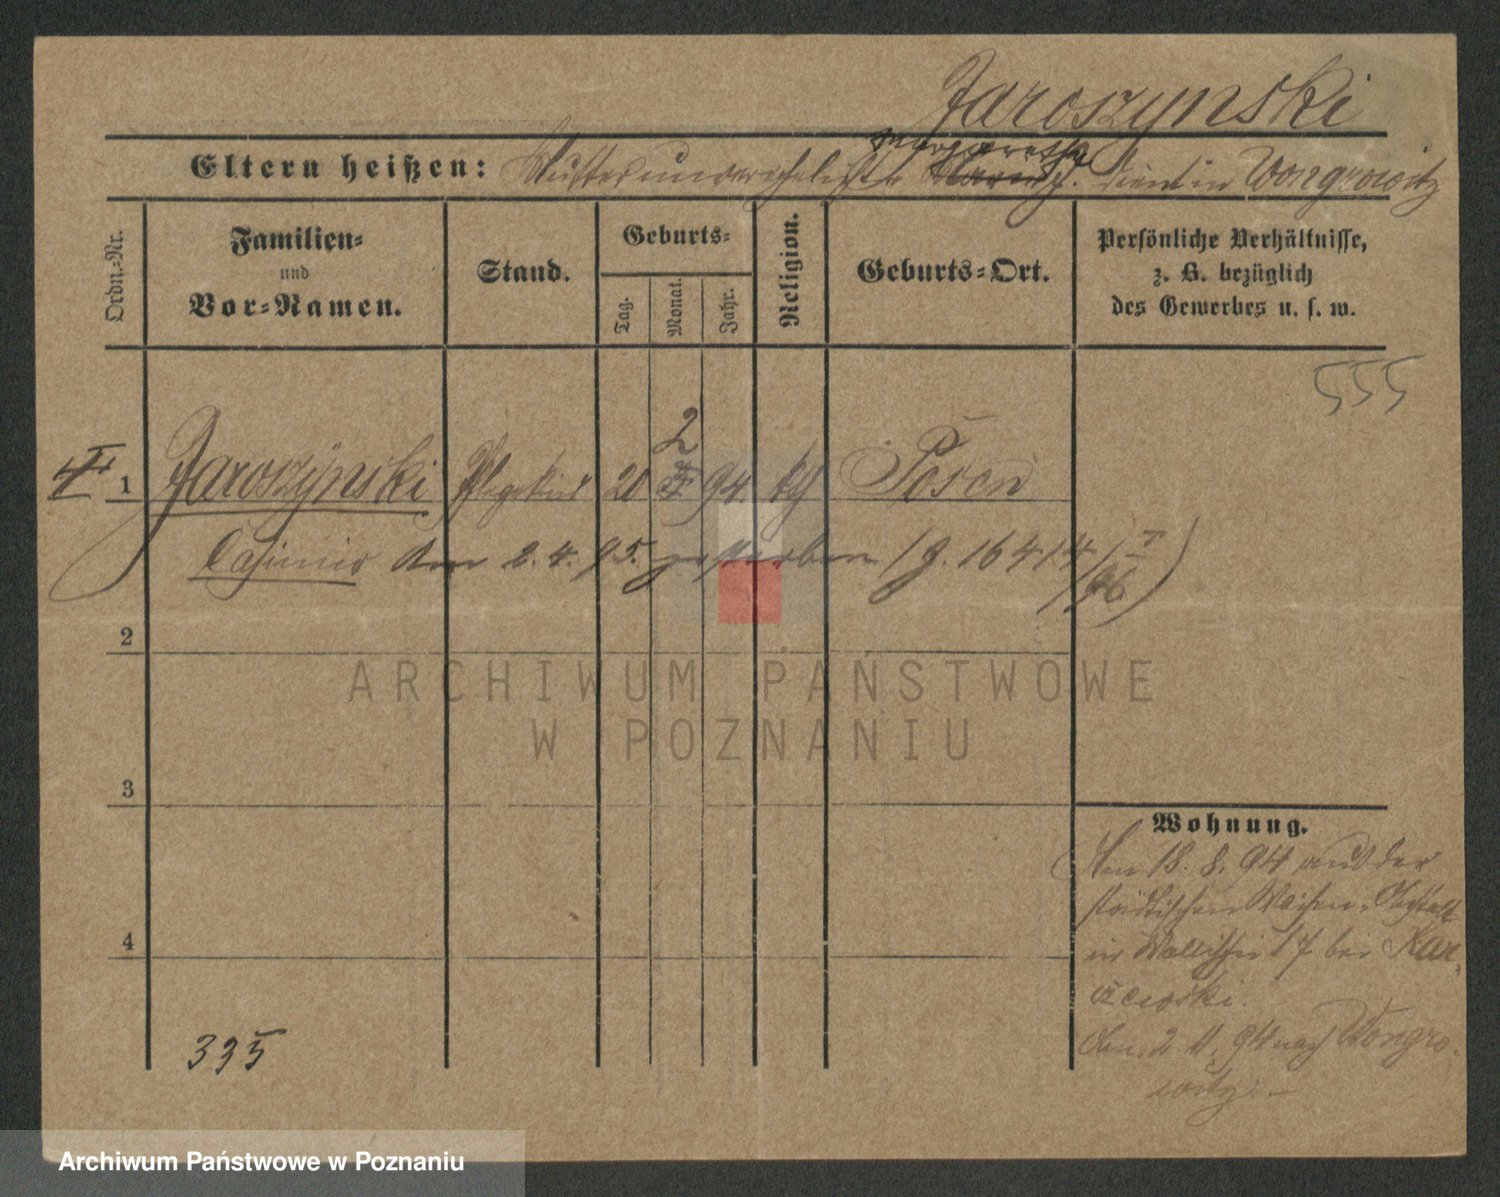 Jaroszynski
Margaretha
Eltern heißen: Mutter unverehelichte J. dient in Wongrowitz
Ordn.-Nr.
Familien-
und
Vor-Namen.
Stand.
Geburts-
Tag.
Monat.
Jahr.
Religion.
Geburts-Ort.
Persönliche Verhältnisse,
z. B. bezüglich
des Gewerbes u. s. w.
555
2
1 Jaroszynski Pflegekind 20 94 kth Posen
Casimir Am 2. 4. 95. gestorben (J. 16414/I 96)
2
ARCHIWUM PAŃSTWOWE
W POZNANIU
3
Wohnung.
Am 18. 8. 94 aus der
städtischen Waisen-Anstalt
in Wallischei 17 bei Kar-
czewski.
Am 2. 11. 94 nach Wongro-
witz. —
4
335
Archiwum Państwowe w Poznaniu